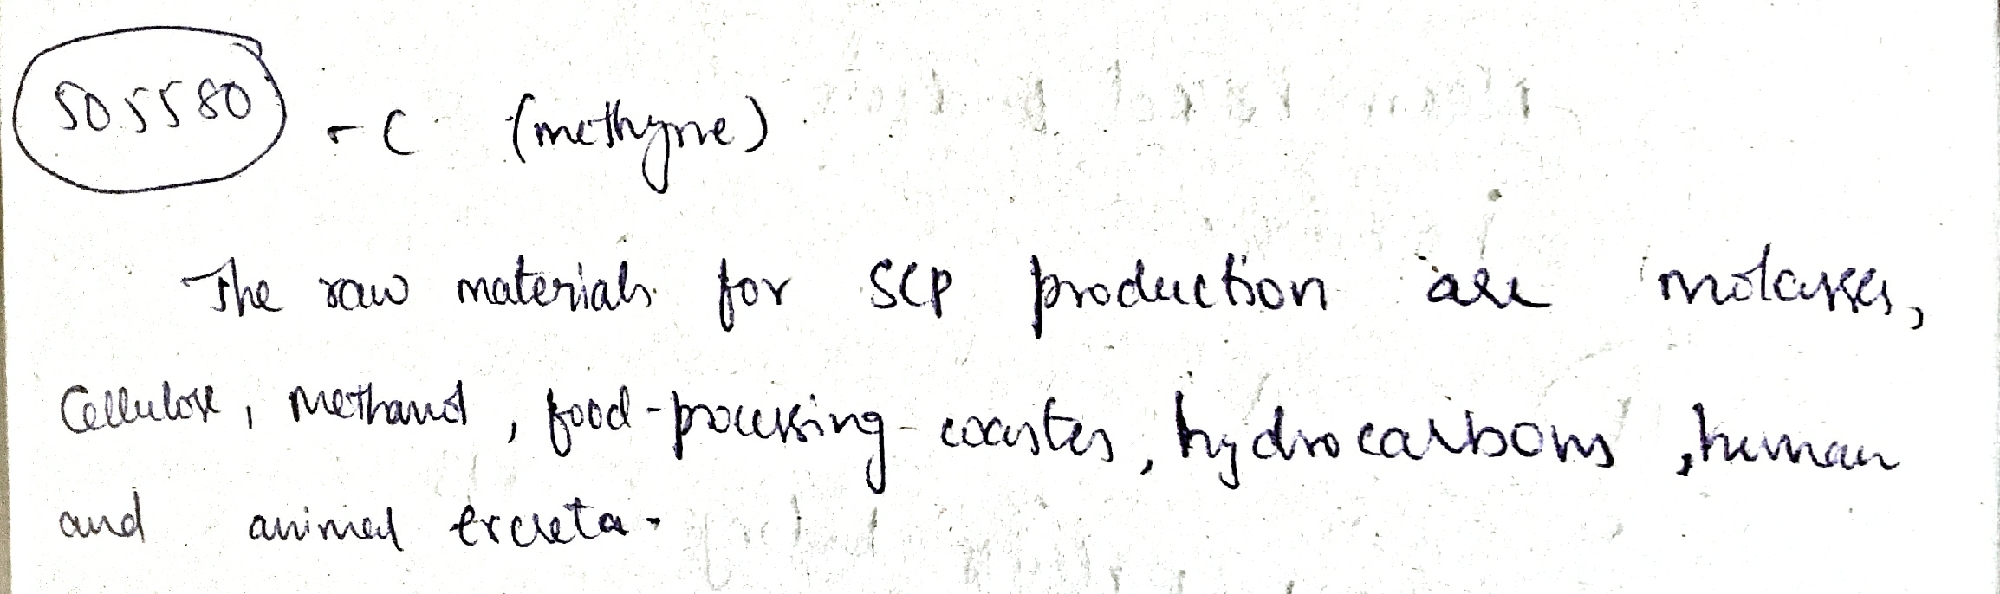 505580 - C (methyne)
The raw materials for SCP production are molasses,
Cellulose, methanol, food-processing wastes, hydrocarbons, human
and animal excreta.